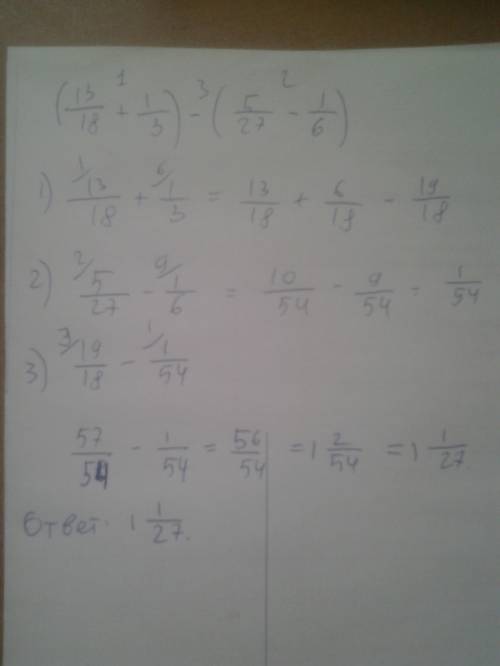 (13/18 + 1/3) - (5/27 - 1/6)
1 3 2
1) 1/ 13/18 + 6/ 1/3 = 13/18 + 6/18 - 19/18
2) 2/ 5/27 - 9/ 1/6 = 10/54 - 9/54 - 1/54
3) 3/ 19/18 - 1/ 1/54
57/54 - 1/54 = 56/54 = 1 2/54 = 1 1/27
Ответ: 1 1/27.